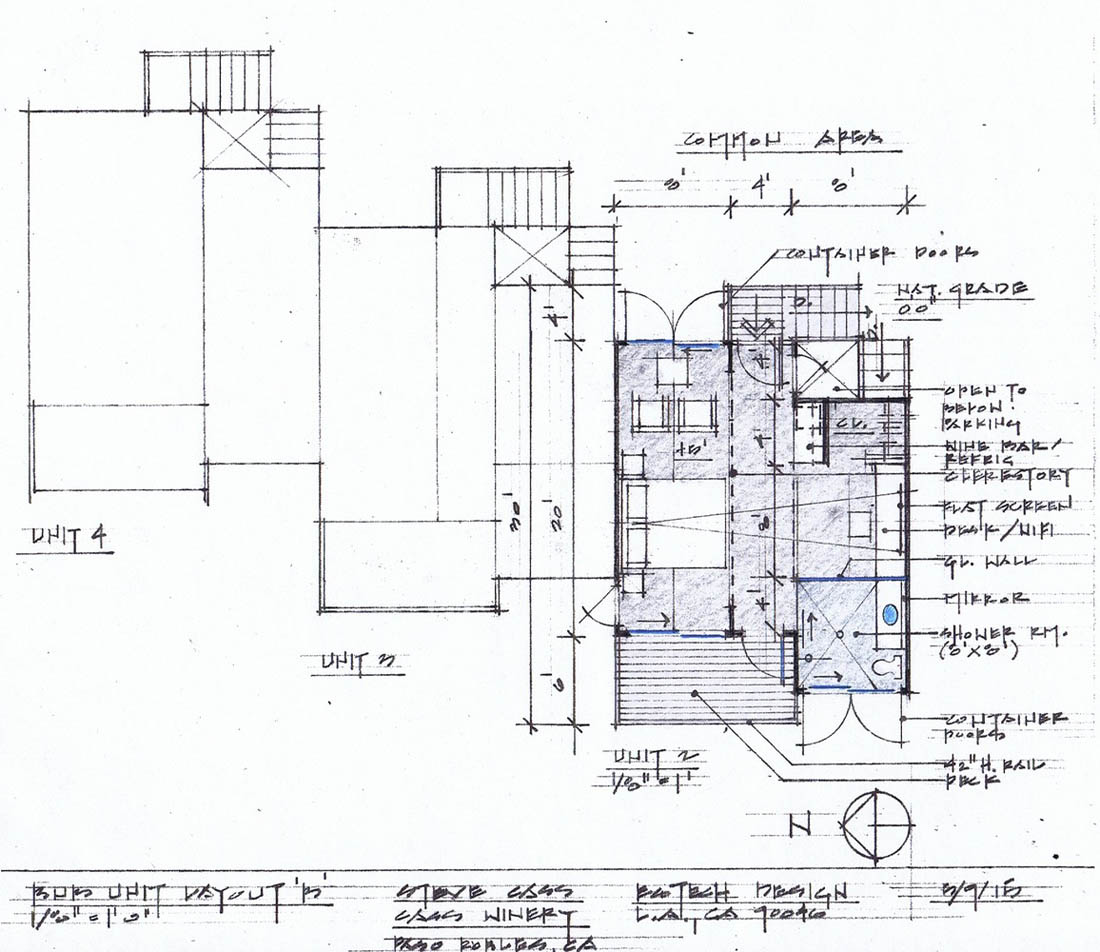 COMMON AREA
8' 4' 8'
CONTAINER DOORS
NAT. GRADE
0'0"
D.
D.
4'
4'
OPEN TO
BELOW:
PARKING
CL.
4'
WINE BAR/
REFRIG
CLERESTORY
30'
20'
8'
FLAT SCREEN
DESK/WIFI
GL. WALL
UNIT 4
MIRROR
4'
SHOWER RM.
(8'X8')
UNIT 3
6'
CONTAINER
DOORS
UNIT 2
1/8" = 1'
42" H. RAIL
DECK
N
BOB UNIT LAYOUT 'B'
1/8" = 1'0"
STEVE CASS
CASS WINERY
PASO ROBLES, CA
ECOTECH DESIGN
L.A., CA 90046
3/9/15